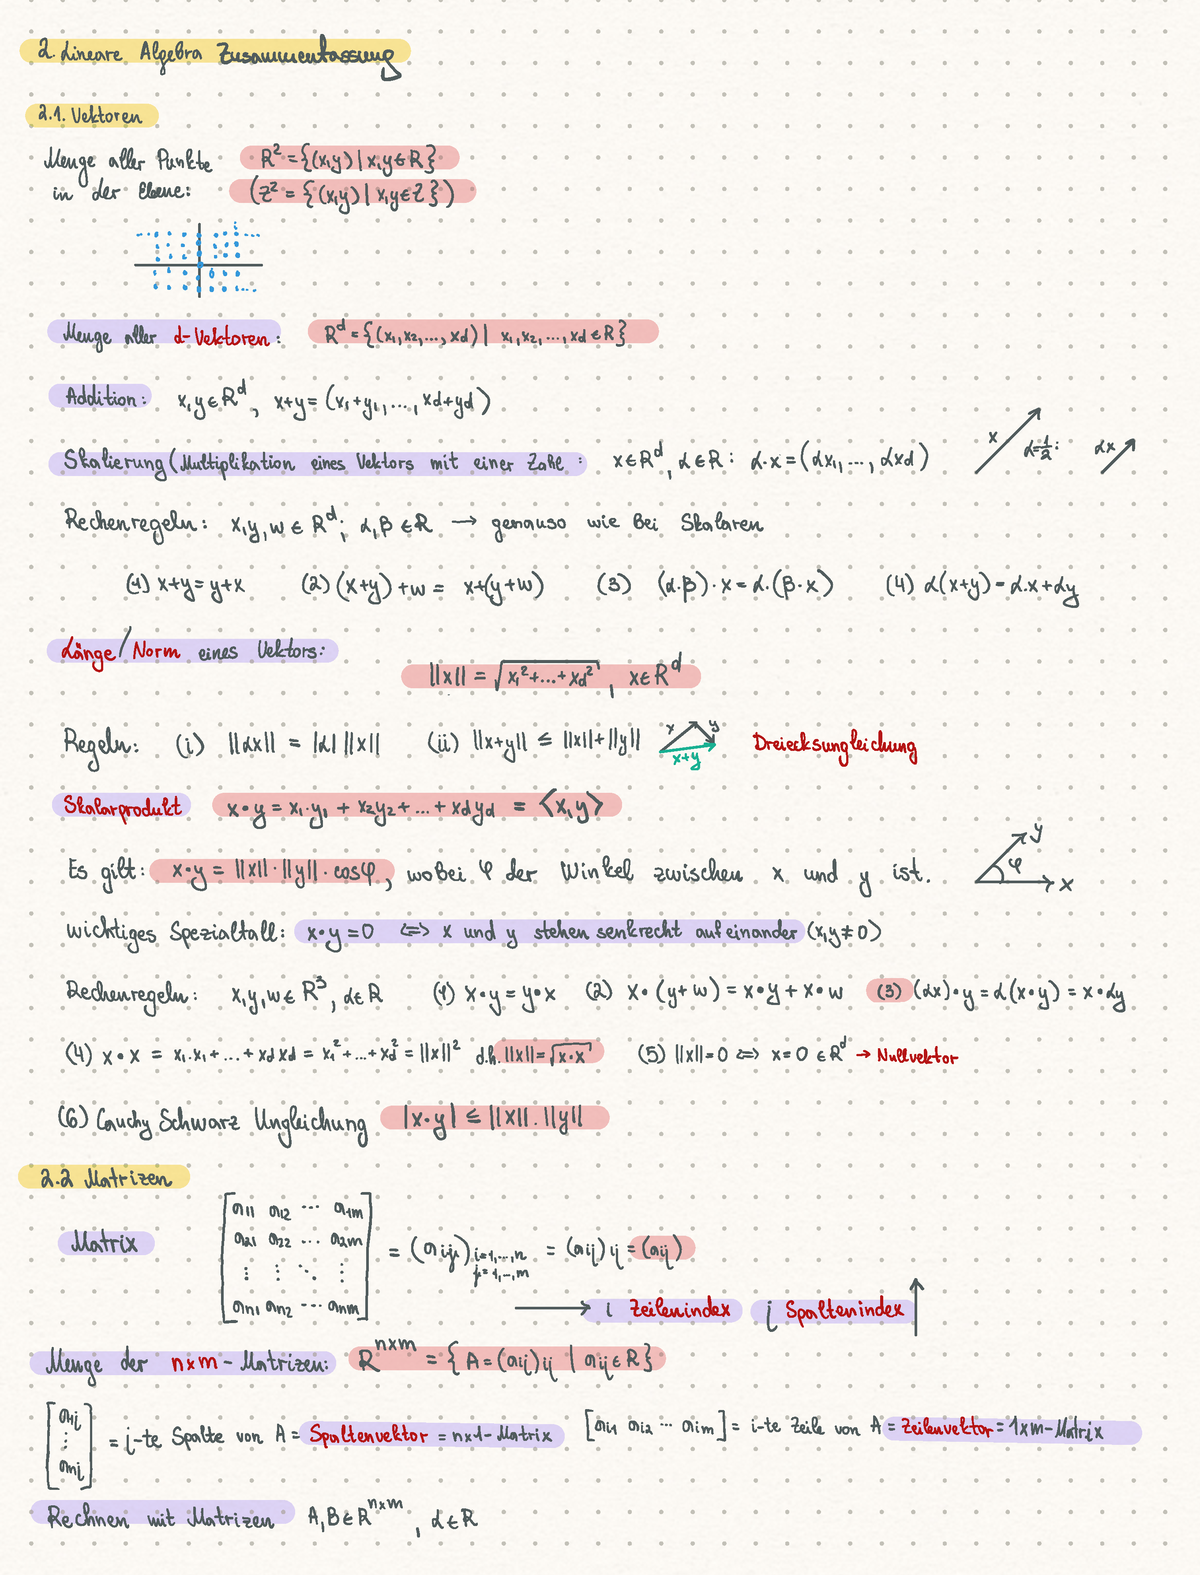 2. Lineare Algebra Zusammenfassung
2.1. Vektoren
Menge aller Punkte R² = {(x,y) | x,y ∈ R}
in der Ebene: (Z² = {(x,y) | x,y ∈ Z})
Menge aller d-Vektoren: R^d = {(x₁,x₂,...,xd) | x₁,x₂,...,xd ∈ R}
Addition: x,y ∈ R^d, x+y = (x₁+y₁,..., xd+yd)
Skalierung (Multiplikation eines Vektors mit einer Zahl: x ∈ R^d, α ∈ R: α·x = (αx₁,..., αxd) x α=1/2: αx
Rechenregeln: x,y,w ∈ R^d; α,β ∈ R → genauso wie bei Skalaren
(1) x+y = y+x (2) (x+y)+w = x+(y+w) (3) (α·β)·x = α·(β·x) (4) α(x+y) = α·x+αy
Länge/Norm eines Vektors:
||x|| = √(x₁²+...+xd²), x ∈ R^d
Regeln: (i) ||αx|| = |α| ||x|| (ii) ||x+y|| ≤ ||x||+||y|| x y x+y Dreiecksungleichung
Skalarprodukt x•y = x₁·y₁ + x₂y₂ + ... + xdyd = <x,y>
Es gilt: x•y = ||x||·||y||·cosφ, wobei φ der Winkel zwischen x und y ist. y φ x
wichtiges Spezialfall: x•y = 0 <=> x und y stehen senkrecht aufeinander (x,y≠0)
Rechenregeln: x,y,w ∈ R³, α ∈ R (1) x•y = y•x (2) x•(y+w) = x•y + x•w (3) (αx)•y = α(x•y) = x•αy
(4) x•x = x₁·x₁ + ... + xdxd = x₁²+...+xd² = ||x||² d.h. ||x|| = √(x•x) (5) ||x||=0 <=> x=0 ∈ R^d → Nullvektor
(6) Cauchy Schwarz Ungleichung |x•y| ≤ ||x||.||y||
2.2 Matrizen
Matrix [a₁₁ a₁₂ ... a₁m
a₂₁ a₂₂ ... a₂m
⋮ ⋮ ⋱ ⋮
an₁ an₂ ... anm] = (aij) i=1,...,n j=1,...,m = (aij)ij = (aij)
→ i Zeilenindex j Spaltenindex ↑
Menge der n×m-Matrizen: R^n×m = {A = (aij)ij | aij ∈ R}
[a₁j ⋮ anj] = j-te Spalte von A = Spaltenvektor = n×1-Matrix [ai₁ ai₂ ... aim] = i-te Zeile von A = Zeilenvektor = 1×m-Matrix
Rechnen mit Matrizen A,B ∈ R^n×m, α ∈ R